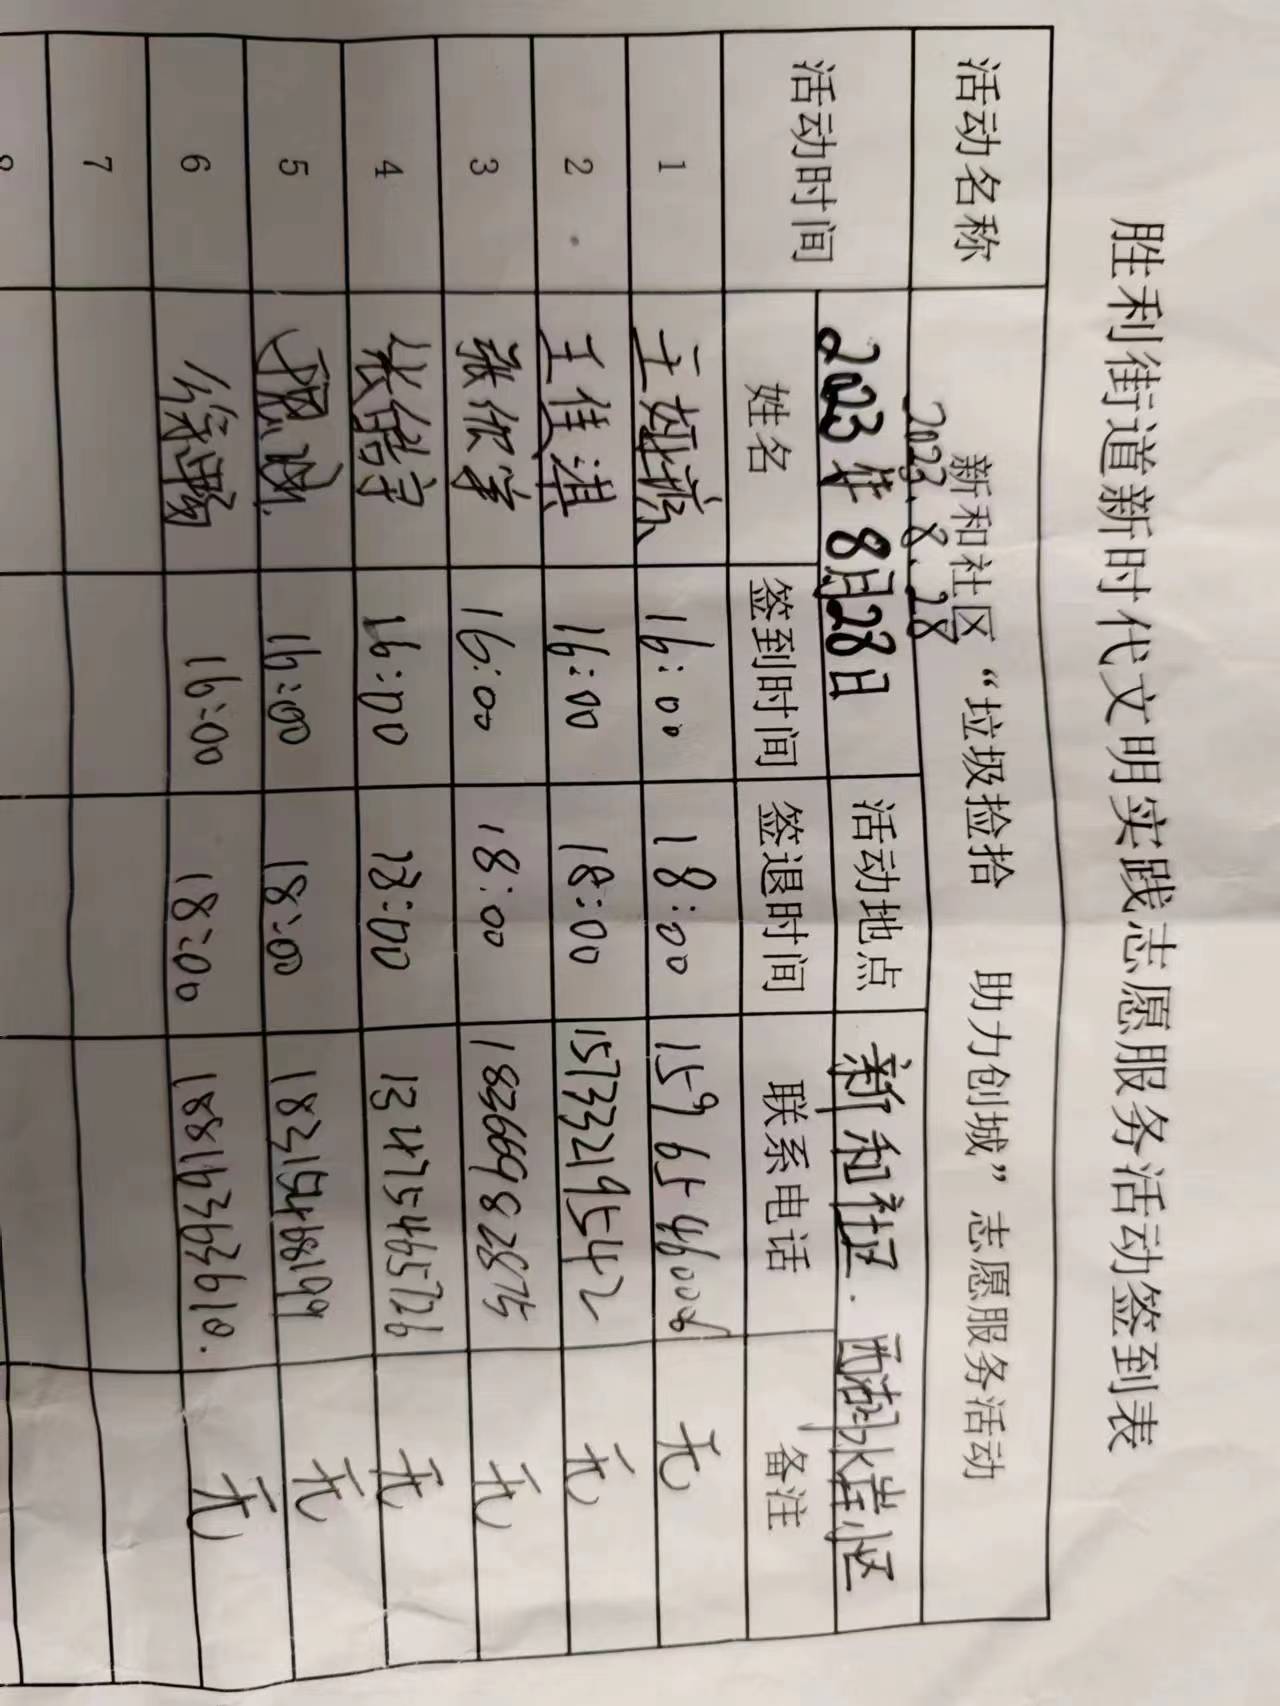 胜利街道新时代文明实践志愿服务活动签到表
活动名称 新和社区“垃圾捡拾 助力创城”志愿服务活动
2023.8.28
活动时间 2023年8月28日 活动地点 新和社区.西湖小区
姓名 签到时间 签退时间 联系电话 备注
1 王 16:00 18:00 1596546008 无
2 王佳淇 16:00 18:00 15733219542 无
3 张依 16:00 18:00 18366982875 无
4 张皓宇 16:00 18:00 13475465726 无
5 16:00 18:00 无
6 徐 16:00 18:00 18189363610. 无
7